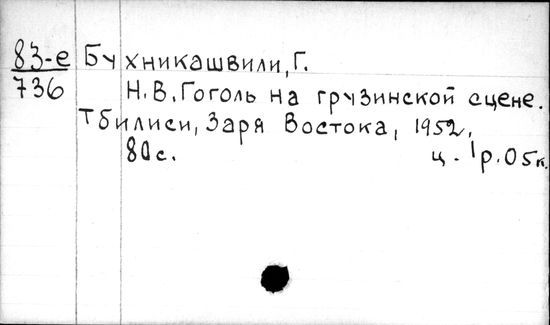 83-е Бухникашвили, Г.
736
Н.В. Гоголь на грузинской сцене.
Тбилиси, Заря Востока, 1952.
80 с. ц. 1р.05к.